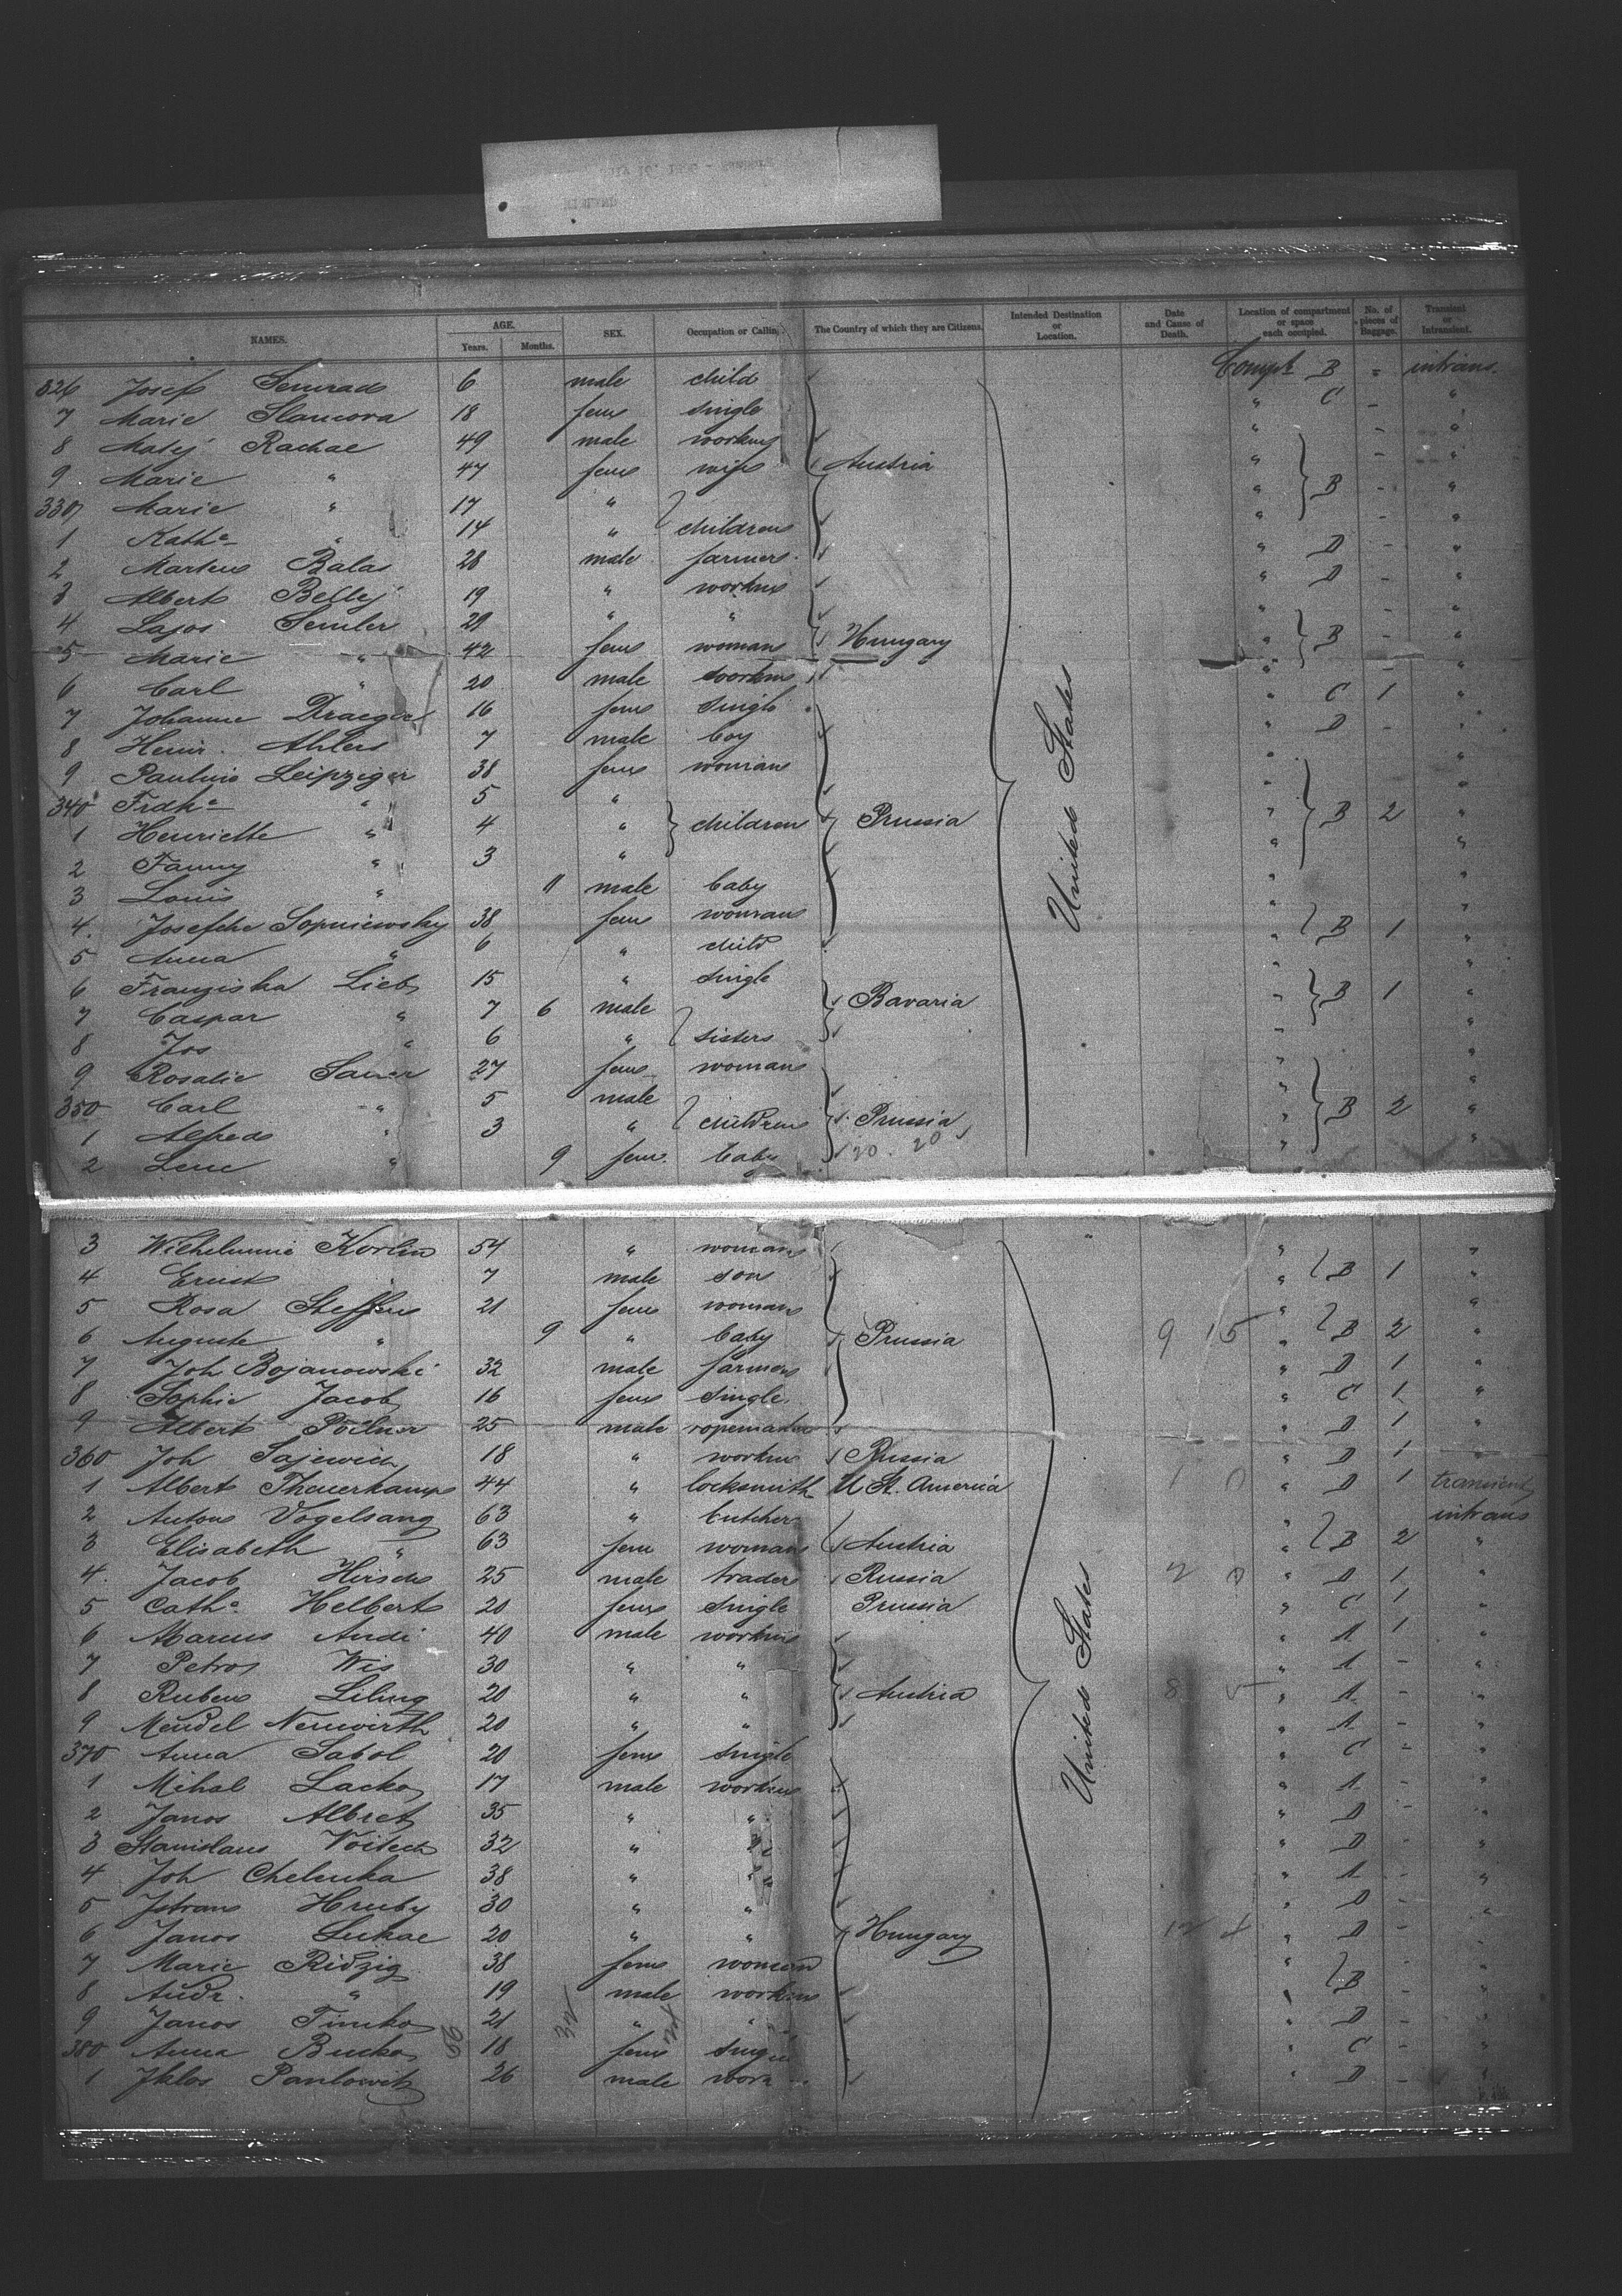 NAMES. AGE. Years. Months. SEX. Occupation or Calling. The Country of which they are Citizens. Intended Destination or Location. Date and Cause of Death. Location of compartment or space each occupied. No. of pieces of Baggage. Transient or Intransient.
326 Josef Semrad 6 male child Compt B " intrans.
7 Marie Slamova 18 fem single " C - "
8 Matej Rachac 49 male workm " - "
9 Marie " 47 fem wife Austria " - "
330 Marie " 17 " " B - "
1 Kath.a " 14 " children " - "
2 Marten Balas 28 male farmer " D - "
3 Albert Belley 19 " workm " D - "
4 Lajos Semler 29 " " " - "
5 Marie " 42 fem woman Hungary " B - "
6 Carl " 20 male workm " - "
7 Johanne Draeger 16 fem single " C 1 "
8 Heinr. Ahlers 7 male boy " D - "
9 Pauline Leipziger 38 fem woman " "
340 Frdk.e " 5 " " "
1 Henriette " 4 " children Prussia " B 2 "
2 Fanny " 3 " " "
3 Louis " 11 male baby " "
4. Josephe Sopniewsky 38 fem woman " B 1 "
5 Anna " 6 " child " "
6 Franziska Lieb 15 " single " "
7 Caspar " 7 6 male Bavaria " B 1 "
8 Jos " 6 " sisters " "
9 Rosalie Sauer 27 fem woman " "
350 Carl " 5 male " "
1 Alfred " 3 " children Prussia " B 2 "
2 Lene " 9 fem. baby 20. 20 " "
United States
3 Wilhelmine Korlin 54 " woman " "
4 Ernst 7 male son " B 1 "
5 Rosa Steffen 21 fem woman " "
6 Auguste " 9 " baby Prussia 9 15 " B 2 "
7 Joh Bojanowski 32 male farmer " D 1 "
8 Sophie Jacob 16 fem single. " C 1 "
9 Albert Pöllner 25 male ropemaker " D 1 "
360 Joh Sajewicz 18 " workm Russia " D 1 "
1 Albert Theuerkamp 44 " locksmith U St. America 1 0 " D 1 transient
2 Anton Vogelsang 63 " butcher " intrans
3 Elisabeth " 63 fem woman Austria " B 2 "
4. Jacob Hirsch 25 male trader Russia 2 0 " D 1 "
5 Cath.a Helbert 20 fem single Prussia " C 1 "
6 Marcus Andi 40 male workm " A 1 "
7 Petros Wis 30 " " " A - "
8 Ruben Liling 20 " " Austria 8 " A - "
9 Mendel Neuwirth 20 " " " A - "
370 Anna Sabol 20 fem single " C - "
1 Mihal Lacko 17 male workm " A - "
2 Janos Albret 35 " " " D - "
3 Stanislaus Voitech 32 " " " D - "
4 Joh Chelenka 38 " " " A - "
5 Istvan Hruby 30 " " " D - "
6 Janos Lukac 20 " " Hungary 12 " D - "
7 Marie Ridzig 38 fem woman " - "
8 Andr. " 19 male workm " B - "
9 Janos Timko 21 " " " D - "
380 Anna Bucko 18 fem single " C - "
1 Iklos Pavlowits 26 male work " D -
United States